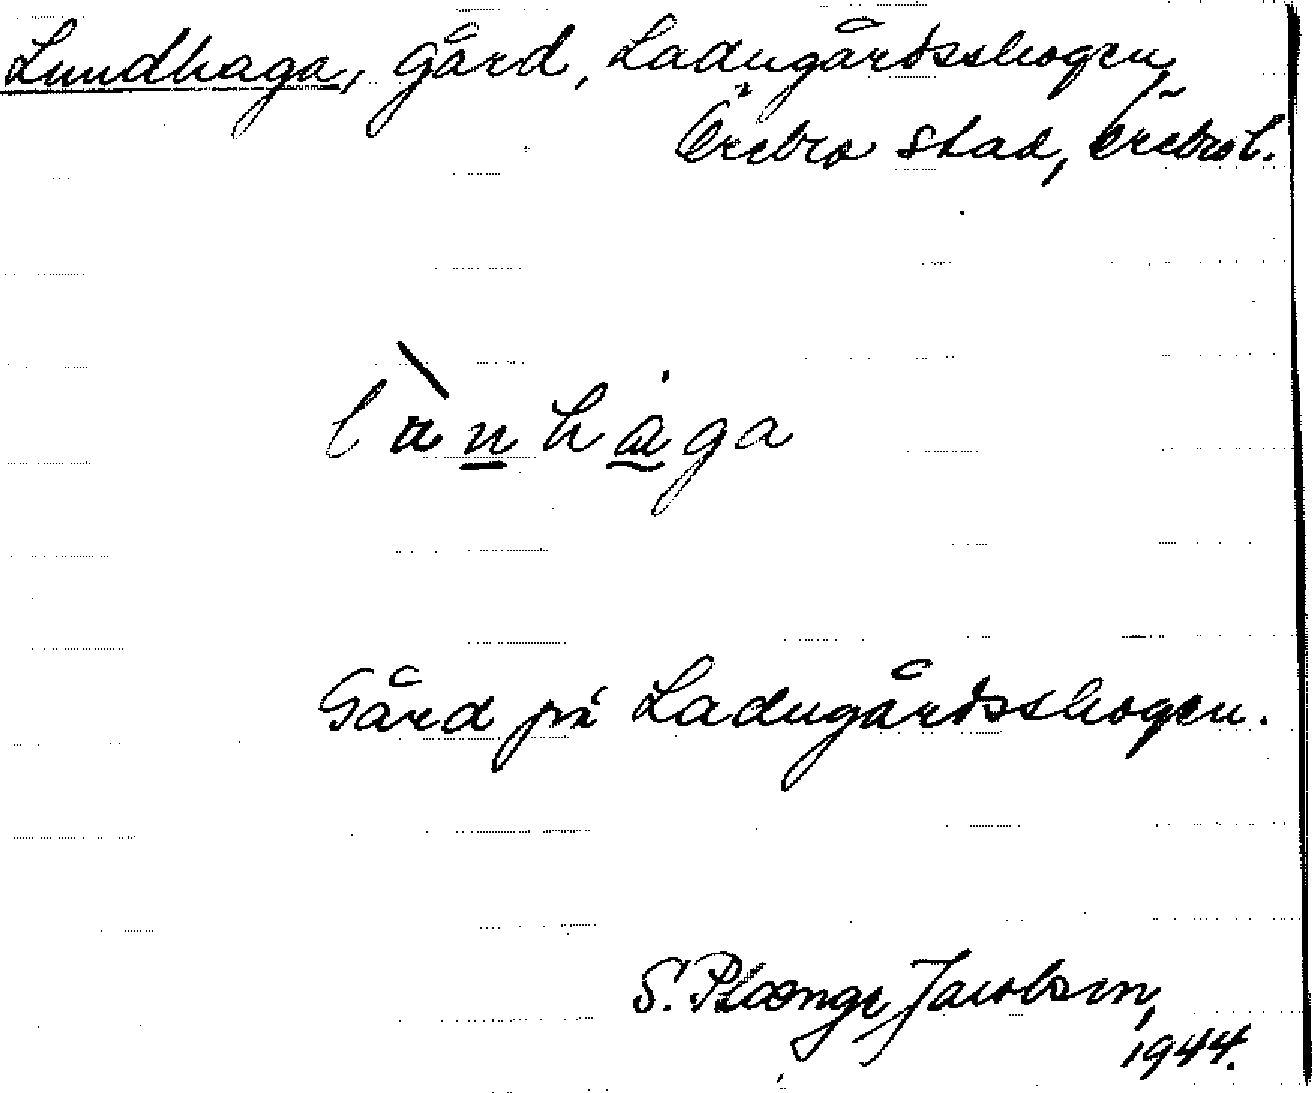 Lundhaga, gård, Ladugårdsskogen,
Örebro stad, Örebro l.
lànhåga
Gård på Ladugårdsskogen.
S. Plænge Jacobson,
1944.